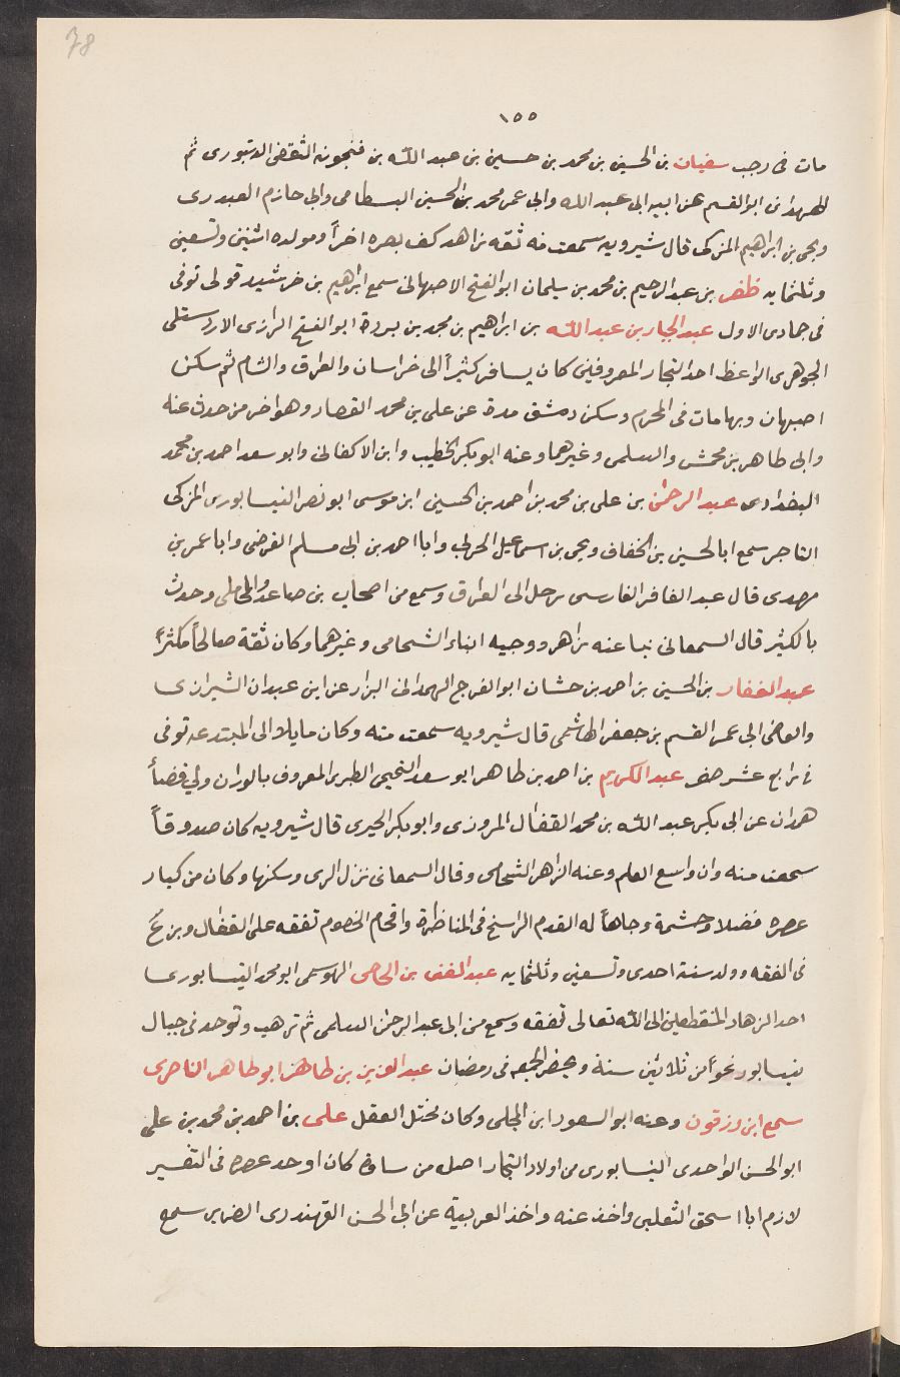 78
١٥٥
مات فى رجب سفيان بن الحسين بن محمد بن حسين بن عبد الله بن فنجويه الثقفى الدينورى ثم
الهمدانى ابو القسم عن ابيه ابى عبد الله وابى عمر محمد بن الحسين البسطامى وابى حازم العبدرى
ويحى بن ابراهيم المزكى قال شيرويه سمعت منه ثقه زاهد كف بصره اخراً ومولده اثنين وتسعين
وثلثمايه ظفر بن عبد الرحيم بن محمد بن سليمان ابو الفتح الاصبهانى سمع ابراهيم بن خرشيد قولى توفى
فى جمادى الاول عبد الجبار بن عبد الله بن ابراهيم بن محمد بن بردة ابو الفتح الرازى الاردستانى
الجوهرى الواعظ احد التجار المعروفين كان يسافر كثيراً الى خراسان والعراق والشام ثم سكن
اصبهان وبها مات فى المحرم وسكن دمشق مدة عن على بن محمد القصار وهو اخر من حدث عنه
وابى طاهر بن محمش والسلمى وغيرهما وعنه ابو بكر الخطيب وابن الاكفانى وابو سعد احمد بن محمد
البغدادى عبد الرحمن بن على بن محمد بن احمد بن الحسين ابن موسى ابو نصر النيسابورى المزكى
التاجر سمع ابا الحسين بن الخفاف ويحى بن اسماعيل الحربى وابا احمد بن ابى مسلم الفرضى وابا عمر بن
مهدى قال عبد الغافر الفارسى رحل الى العراق وسمع من اصحاب بن صاعد والمحاملى وحدث
بالكثير قال السمعانى نبا عنه زاهر ووجيه ابناء الشحامى وغيرهما وكان ثقة صالحاً مكثراً
عبد الغفار بن الحسين بن احمد بن حشان ابو الفرج الهمدانى البزار عن ابن عبدان الشيرازى
والقاضى ابى عمر القسم بن جعفر الهاشمى قال شيرويه سمعت منه وكان مايلا الى المبتدعه توفى
فى رابع عشر صفر عبد الكريم بن احمد بن طاهر ابو سعد التيمى الطبرى المعروف بالوزان ولى قضا
همدان عن ابى بكر عبد الله بن محمد القفال المروزى وابو بكر الحيرى قال شيرويه كان صدوقاً
سمعت منه وان واسع العلم وعنه الزاهر الشحامى وقال السمعانى نزل الرى وسكنها وكان من كبار
عصره فضلا وحشمة وجاهاً له القدم الراسخ فى المناظرة وافحام الخصوم تفقه على القفال وبرع
فى الفقه وولد سنة احدى وتسعين وثلثمايه عبد الغنى بن الحاجى ابو محمد النيسابورى
احد الزهاد المنقطعين الى الله تعالى تفقه وسمع من ابى عبد الرحمن السلمى ثم ترهب وتوحد فى جبال
نيسابور نحواً من ثلاثين سنة ويحضر الجمعه فى رمضان عبد العزيز بن طاهر ابو طاهر
سمع ابن رزقون وعنه ابو السعود ابن المجلى وكان مختل العقل على بن احمد بن محمد بن على
ابو الحسن الواحدى النيسابورى من اولاد التجار اصله من ساوة كان اوحد عصره فى التفسير
لازم ابا اسحق الثعلبى واخذ عنه واخذ العربية عن ابى الحسن القهندرى الضرير سمع